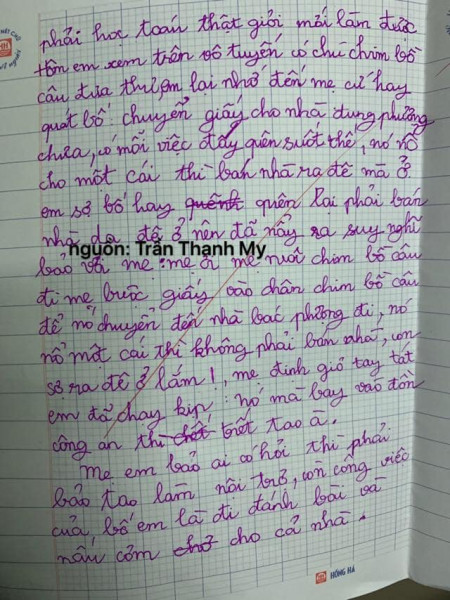 phải học toán thật giỏi mới làm được
hôm em xem trên vô tuyến có chú chim bồ
câu đưa thư, em lại nhớ đến mẹ cứ hay
quát bố: chuyển giấy cho nhà dung phường
chưa, có mỗi việc đấy quên suốt thế, nó nổ
cho một cái thì bán nhà ra đê mà ở.
em sợ bố hay quên lại phải bán
nhà ra đê ở nên đã nảy ra suy nghĩ
nguồn: Trần Thanh My
bảo với mẹ: mẹ ơi mẹ nuôi chim bồ câu
đi mẹ buộc giấy vào chân chim bồ câu
để nó chuyển đến nhà bác phường đi, nó
nổ một cái thì không phải bán nhà, con
sợ ra đê ở lắm!, mẹ định giơ tay tát
em đã chạy kịp: nó mà bay vào đồn
công an thì chết tao à.
Mẹ em bảo ai có hỏi thì phải
bảo tao làm nội trợ, còn công việc
của bố em là đi đánh bài và
nấu cơm cho cả nhà.
HỒNG HÀ